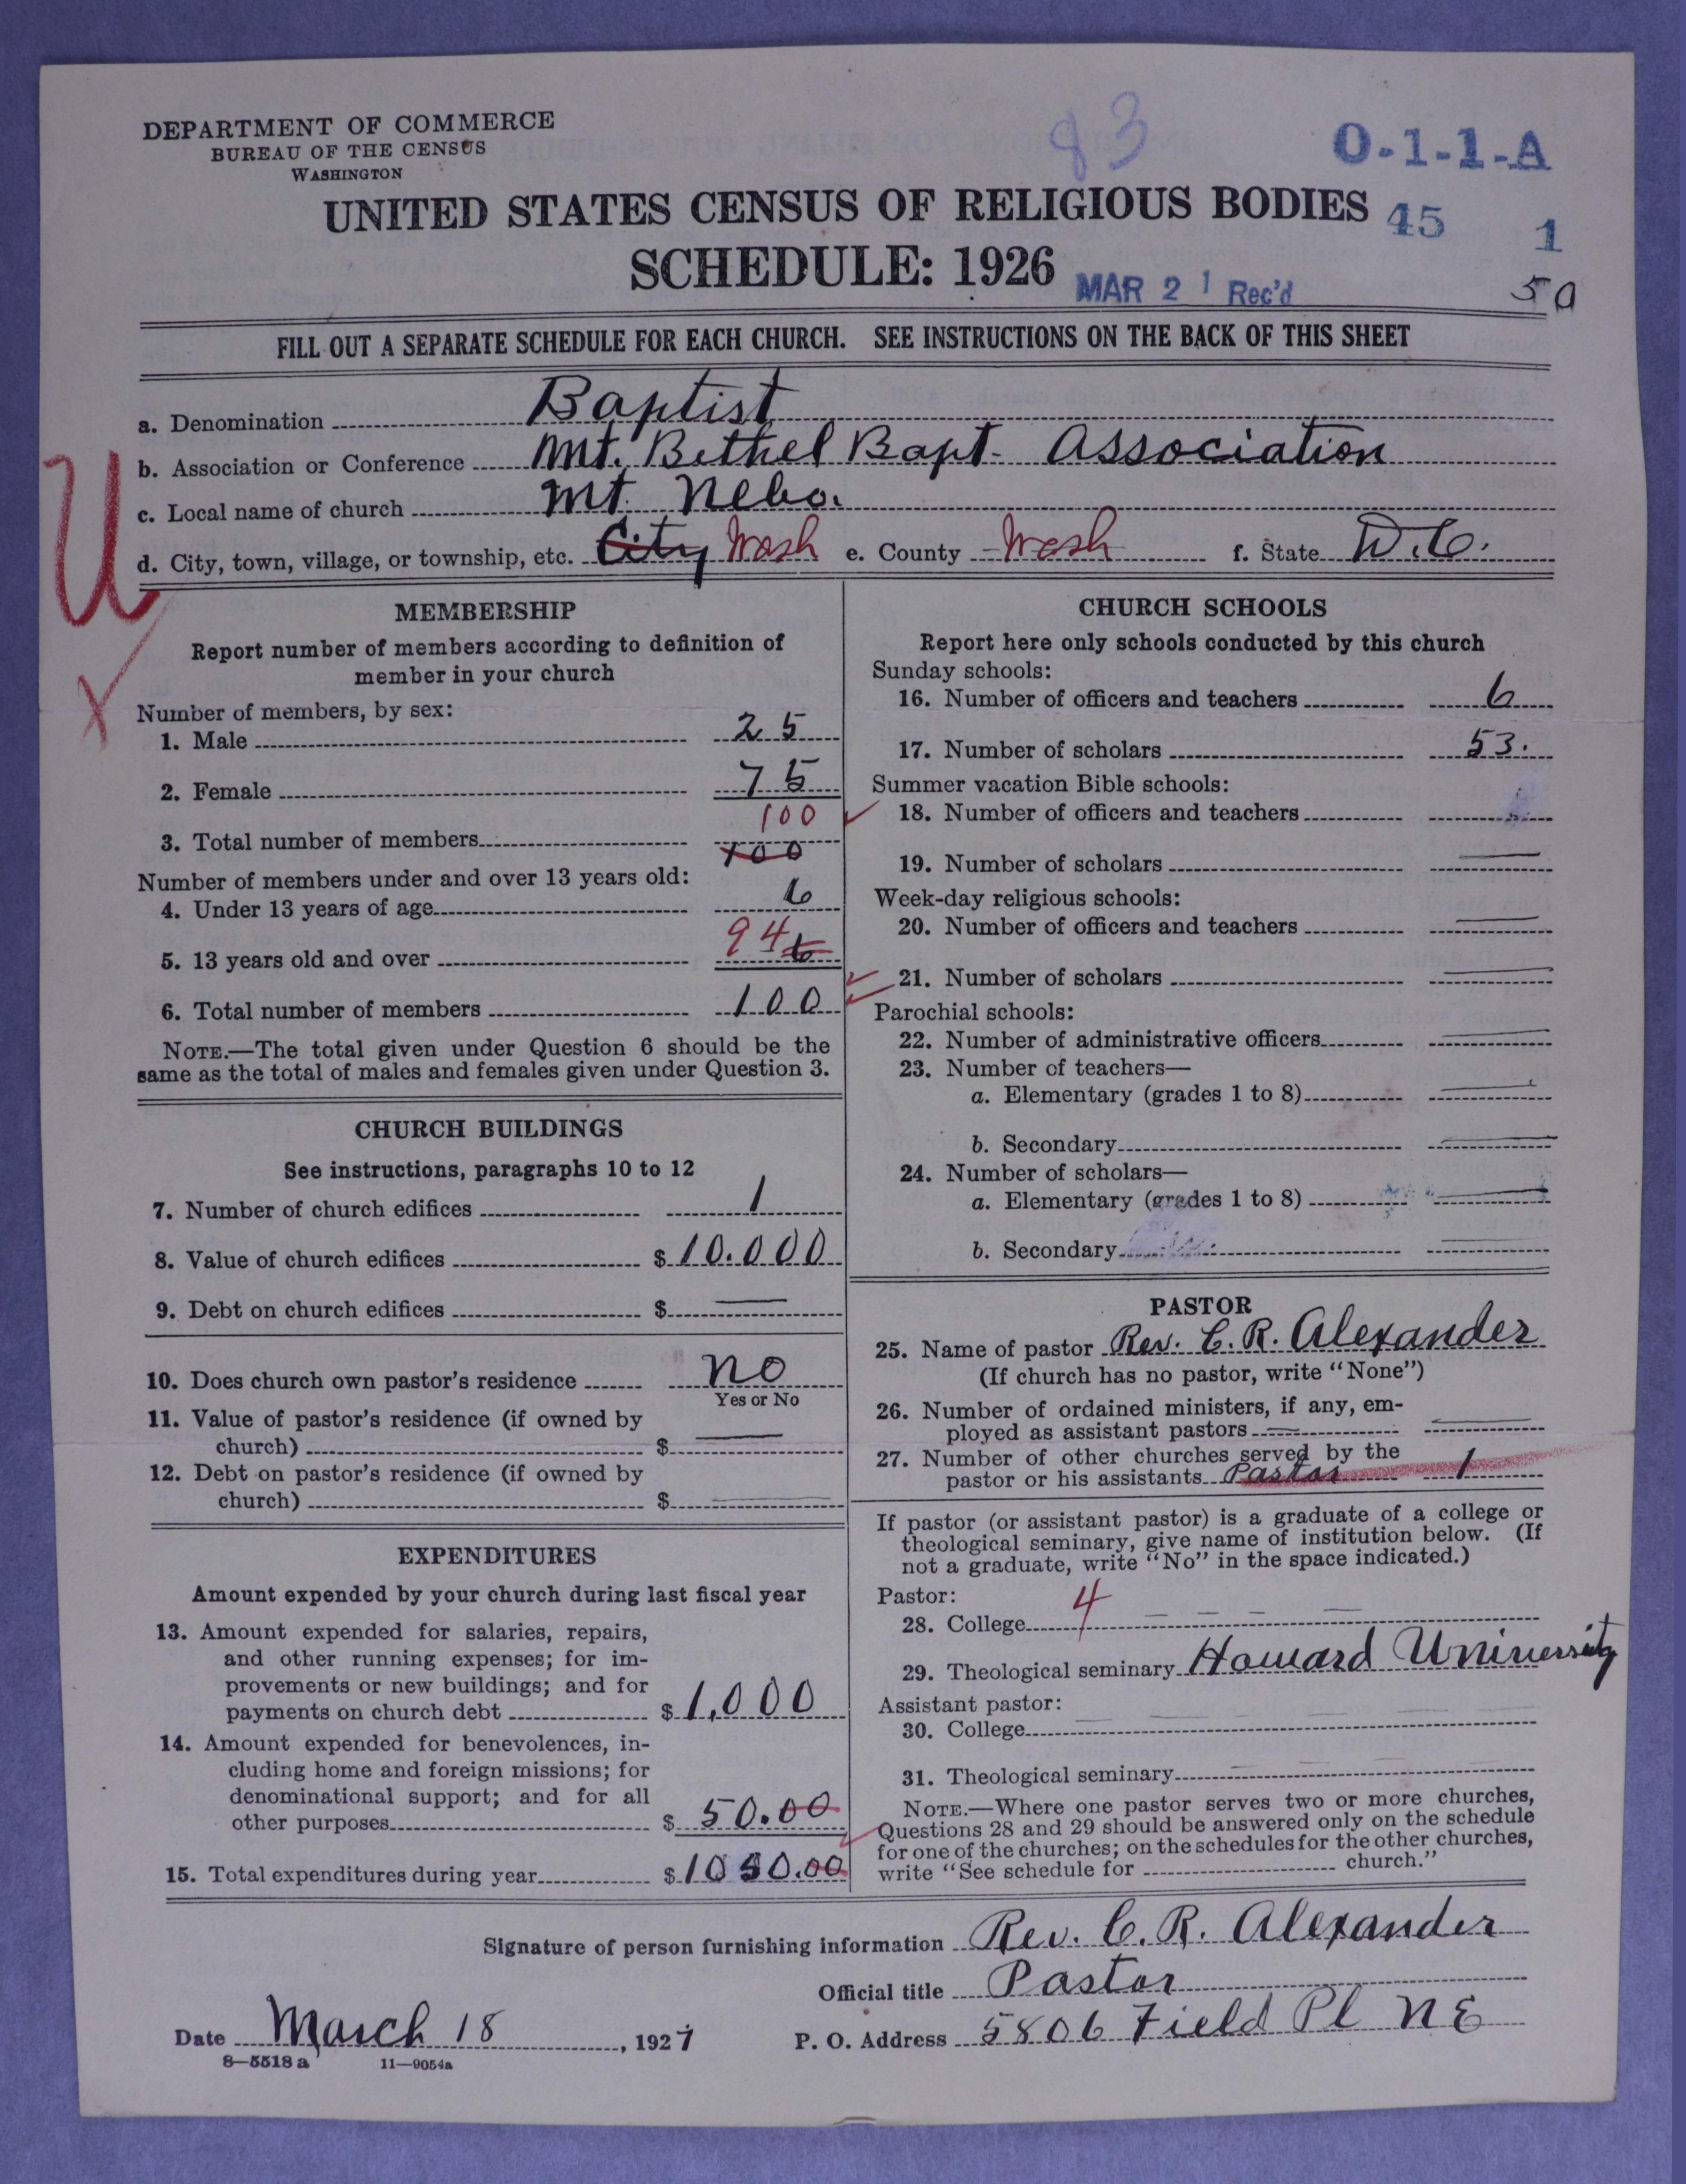 DEPARTMENT OF COMMERCE
BUREAU OF THE CENSUS
WASHINGTON
83
O-1-1-A
UNITED STATES CENSUS OF RELIGIOUS BODIES
45 1
SCHEDULE: 1926
MAR 21 Rec'd
50
FILL OUT A SEPARATE SCHEDULE FOR EACH CHURCH. SEE INSTRUCTIONS ON THE BACK OF THIS SHEET
a. Denomination Baptist
b. Association or Conference Mt. Bethel Bapt. Association
c. Local name of church Mt. Nebo.
d. City, town, village, or township, etc. City Wash e. County Wash f. State D.C.
U
X
MEMBERSHIP
Report number of members according to definition of
member in your church
Number of members, by sex:
1. Male 25
2. Female 75
100
3. Total number of members 100
Number of members under and over 13 years old:
4. Under 13 years of age 6
5. 13 years old and over 94 6
6. Total number of members 100
NOTE.—The total given under Question 6 should be the
same as the total of males and females given under Question 3.
CHURCH BUILDINGS
See instructions, paragraphs 10 to 12
7. Number of church edifices 1
8. Value of church edifices $ 10.000
9. Debt on church edifices $ —
10. Does church own pastor's residence No
Yes or No
11. Value of pastor's residence (if owned by
church) $ —
12. Debt on pastor's residence (if owned by
church) $ —
EXPENDITURES
Amount expended by your church during last fiscal year
13. Amount expended for salaries, repairs,
and other running expenses; for im-
provements or new buildings; and for
payments on church debt $ 1,000
14. Amount expended for benevolences, in-
cluding home and foreign missions; for
denominational support; and for all
other purposes $ 50.00
15. Total expenditures during year $ 1050.00
CHURCH SCHOOLS
Report here only schools conducted by this church
Sunday schools:
16. Number of officers and teachers 6
17. Number of scholars 53.
Summer vacation Bible schools:
18. Number of officers and teachers
19. Number of scholars —
Week-day religious schools:
20. Number of officers and teachers —
21. Number of scholars —
Parochial schools:
22. Number of administrative officers —
23. Number of teachers—
a. Elementary (grades 1 to 8) —
b. Secondary —
24. Number of scholars—
a. Elementary (grades 1 to 8) —
b. Secondary —
PASTOR
25. Name of pastor Rev. C. R. Alexander
(If church has no pastor, write "None")
26. Number of ordained ministers, if any, em-
ployed as assistant pastors — —
27. Number of other churches served by the
pastor or his assistants Pastor 1
If pastor (or assistant pastor) is a graduate of a college or
theological seminary, give name of institution below. (If
not a graduate, write "No" in the space indicated.)
Pastor:
28. College 4 — — — —
29. Theological seminary Howard University
Assistant pastor:
30. College — — — — —
31. Theological seminary — — — —
NOTE.—Where one pastor serves two or more churches,
Questions 28 and 29 should be answered only on the schedule
for one of the churches; on the schedules for the other churches,
write "See schedule for church."
Signature of person furnishing information Rev. C. R. Alexander
Official title Pastor
Date March 18, 1927 P. O. Address 5806 Field Pl NE
8—5518 a 11—9054a